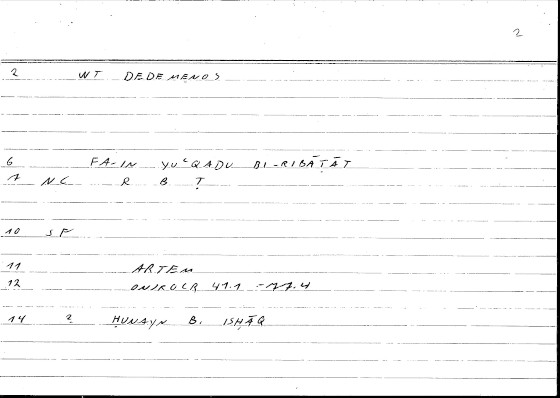 2
2 WT DEDEMENOS
6 FA-IN YUʿQADU BI-RIBĀṬĀT
7 NC R B Ṭ
10 SF
11 ARTEM
12 ONIROCR 41.1 - 77.4
14 2 ḤUNAYN B. ISḤĀQ